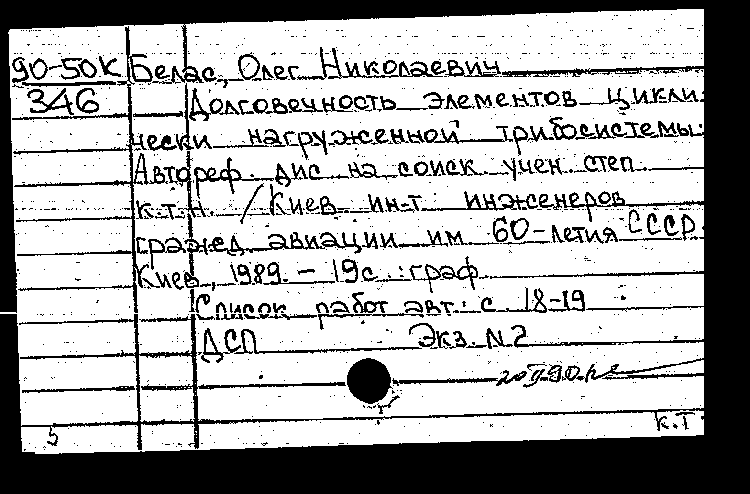 90-50К Белас, Олег Николаевич
346 Долговечность элементов цикли-
чески нагруженной трибосистемы:
Автореф. дис на соиск учен. степ.
к.т.н. / Киев ин-т инженеров
гражд. авиации им 60-летия СССР.
Киев, 1989. - 19с.: граф
Список работ авт.: с. 18-19
ДСП Экз. N2
5 к.т.